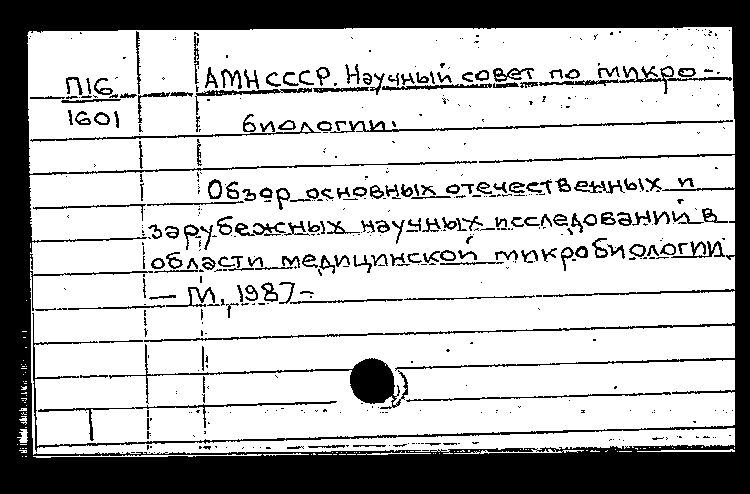 П16
1601
АМН СССР. Научный совет по микро-
биологии:
Обзор основных отечественных и
зарубежных научных исследований в
области медицинской микробиологии.
— М., 1987-